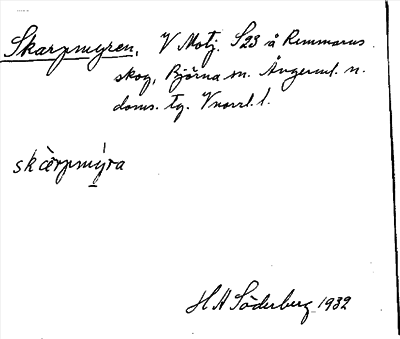 Skarpmyren. V Motj. S23 å Remmarns
skog, Björna sn. Ångerml. n.
doms. tg. Vnorrl. l.
skàrpmýra
H A Söderberg 1932